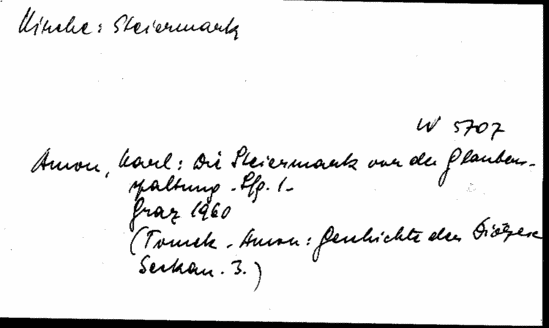 Kirche: Steiermark
W 5707
Amon, Karl: Die Steiermark vor der Glaubens-
spaltung. Lfg. 1-
Graz 1960
(Tomek-Amon: Geschichte der Diözese
Seckau. 3.)